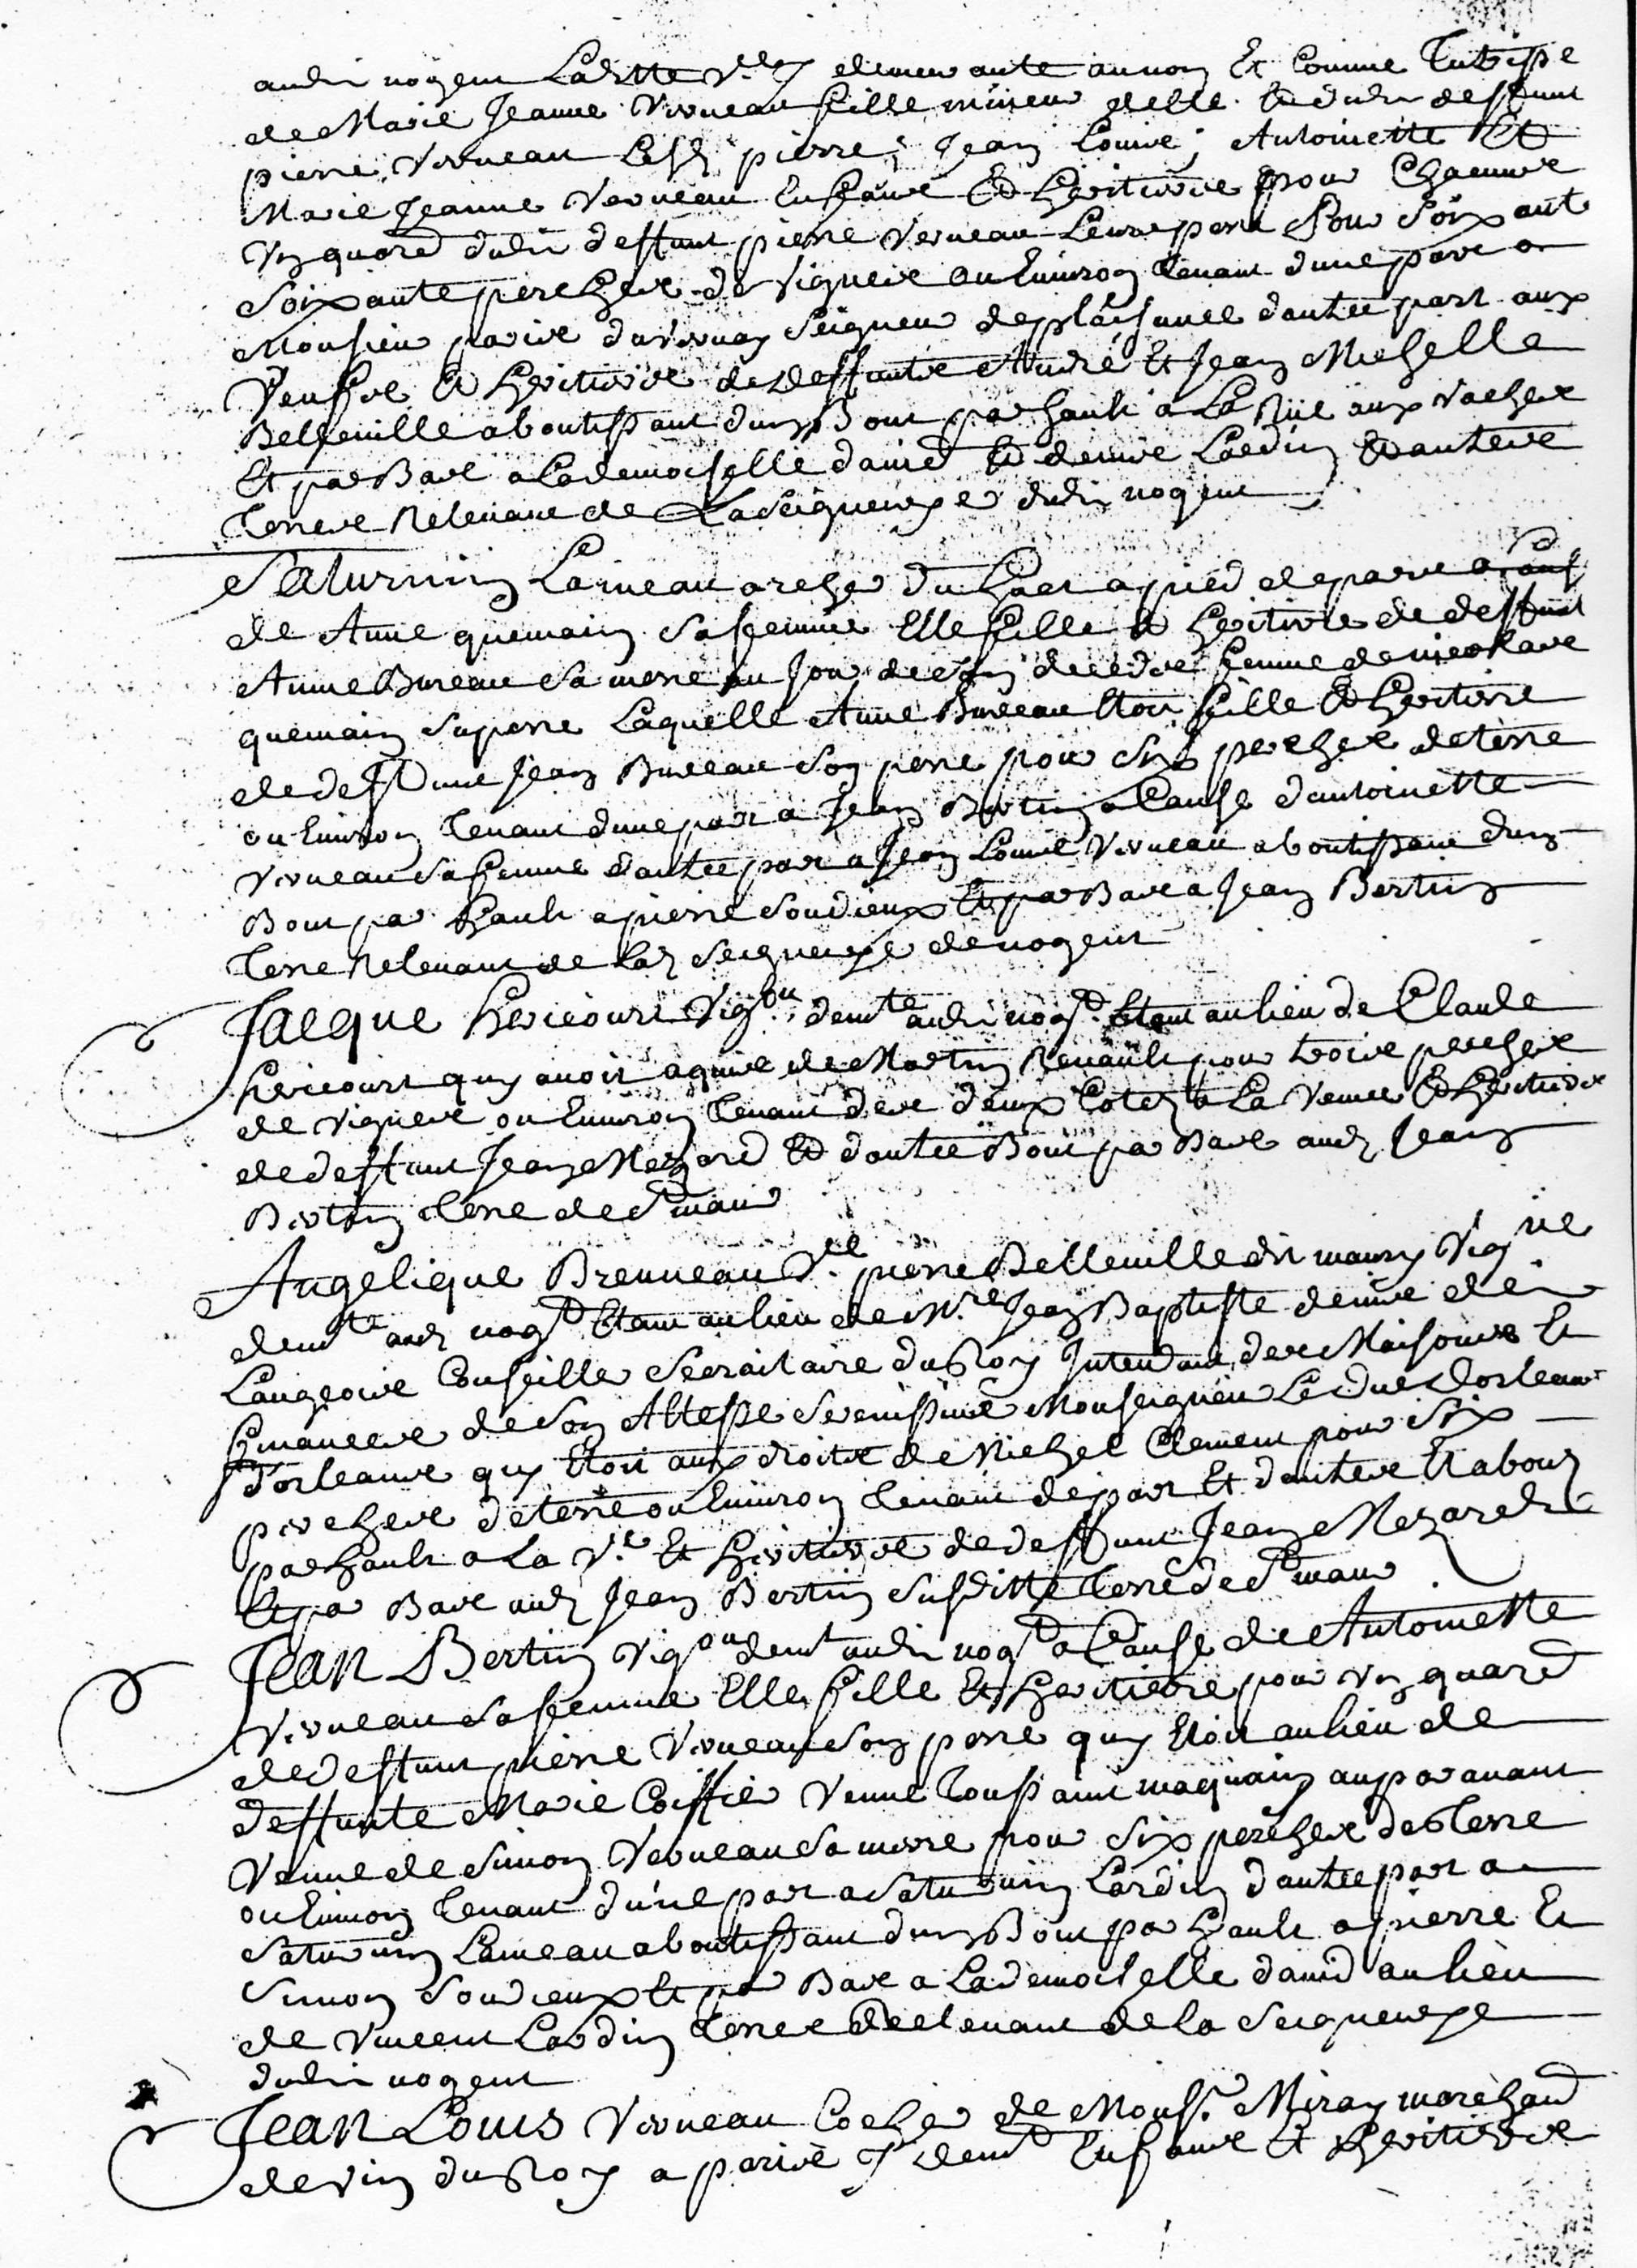 audit nogent Laditte V.e y demeurante au nom Et Comme Tutrisse
de Marie Jeanne Verneau fille mineur delle Et dudit deffunt
pierre Verneau Lesd pierre, Jean Louis, Antoinette Et
Marie Jeanne Verneau Enfans Et heritiers pour Chacune
Un quard dudit deffunt pierre Verneau Leurs pere Pour Soixante
Soixante perches de Vignes ou Environ tenant dune part a
Monsieur paris duvernay Seigneur de plaisance dautre part aux
Veufve Et heritiers de deffuntes André Et Jean Michelle
Belleville aboutissant dun Bout par hault a La Rue aux Vaches
Et par Bas a Lademoiselle david Et denise Lardin Et autres
terres Relevant de La Seigneurye dudit nogent
Saturnin Laineau archer du Guet a pied de paris a cause
de Anne quemain Sa femme Elle fille Et heritiere de deffunt
Anne Bureau Sa mere au Jour de Son decedes femme de nicolas
quemain Son pere Laquelle Anne Bureau Etoit fille Et heritiere
de deffunt Jean Bureau Son pere pour Six perches de terre
ou Environ tenant dune part a Jean Bertin a Cause dantoinette
Verneau Sa femme dautre part a Jean Louis Verneau aboutissant dun
Bout par hault a pierre Soudieux Et par Bas a Jean Bertin
terre Relevant de Lad Seigneurye de nogent
Jacque hericourt Vig.on demte audit nogt Etant au lieu de Claude
hericourt quy avoit aquis de Martin Renault pour trois perches
de Vignes ou Environ tenant des deux Cotez a La Veuve Et heritiers
de deffunt Jean Mezard Et dautre Bout par Bas aud Jean
Bertin terre de St maur
Angelique Breuneau V.e pierre Belleville dit maury Vigne
demte aud nogt Etant au lieu de Mre Jean Baptiste denise de
Langeois Conseille Secraitaire du Roy Intendant des Maisons Et
finances de Son Altesse Serenissime Monseigneur Le Duc dorleans
Dorleans quy Etoit aux droits de Michel Clement pour Six
perches de terre ou Environ tenant de part Et dautre Et about
par hault a La V.e Et heritiers de deffunt Jean Mezard
Et par Bas aud Jean Bertin Susditte terre de St maur
Jean Bertin Vigon demt audit nogt a Cause de Antoinette
Verneau Sa femme Elle fille Et heritiere pour Un quard
de deffunt pierre Verneau Son pere quy Etoit au lieu de
deffunte Marie Coiffier Veuve toussaint maquain auparavant
Veuve de Simon Verneau Sa mere pour Six perches de terre
ou Environ tenant dune part a Saturnin Lardin dautre part a
Saturnin Laineau aboutissant dun Bout par hault a pierre Et
Simon Soudieux Et par Bas a Lademoiselle david au lieu
de Vincent Lardin terre Relevant de la Seigneurye
dudit nogent
Jean Louis Verneau Cocher de Monsr Miray marchand
de vin du Roy a paris y demt Enfans Et heritiers